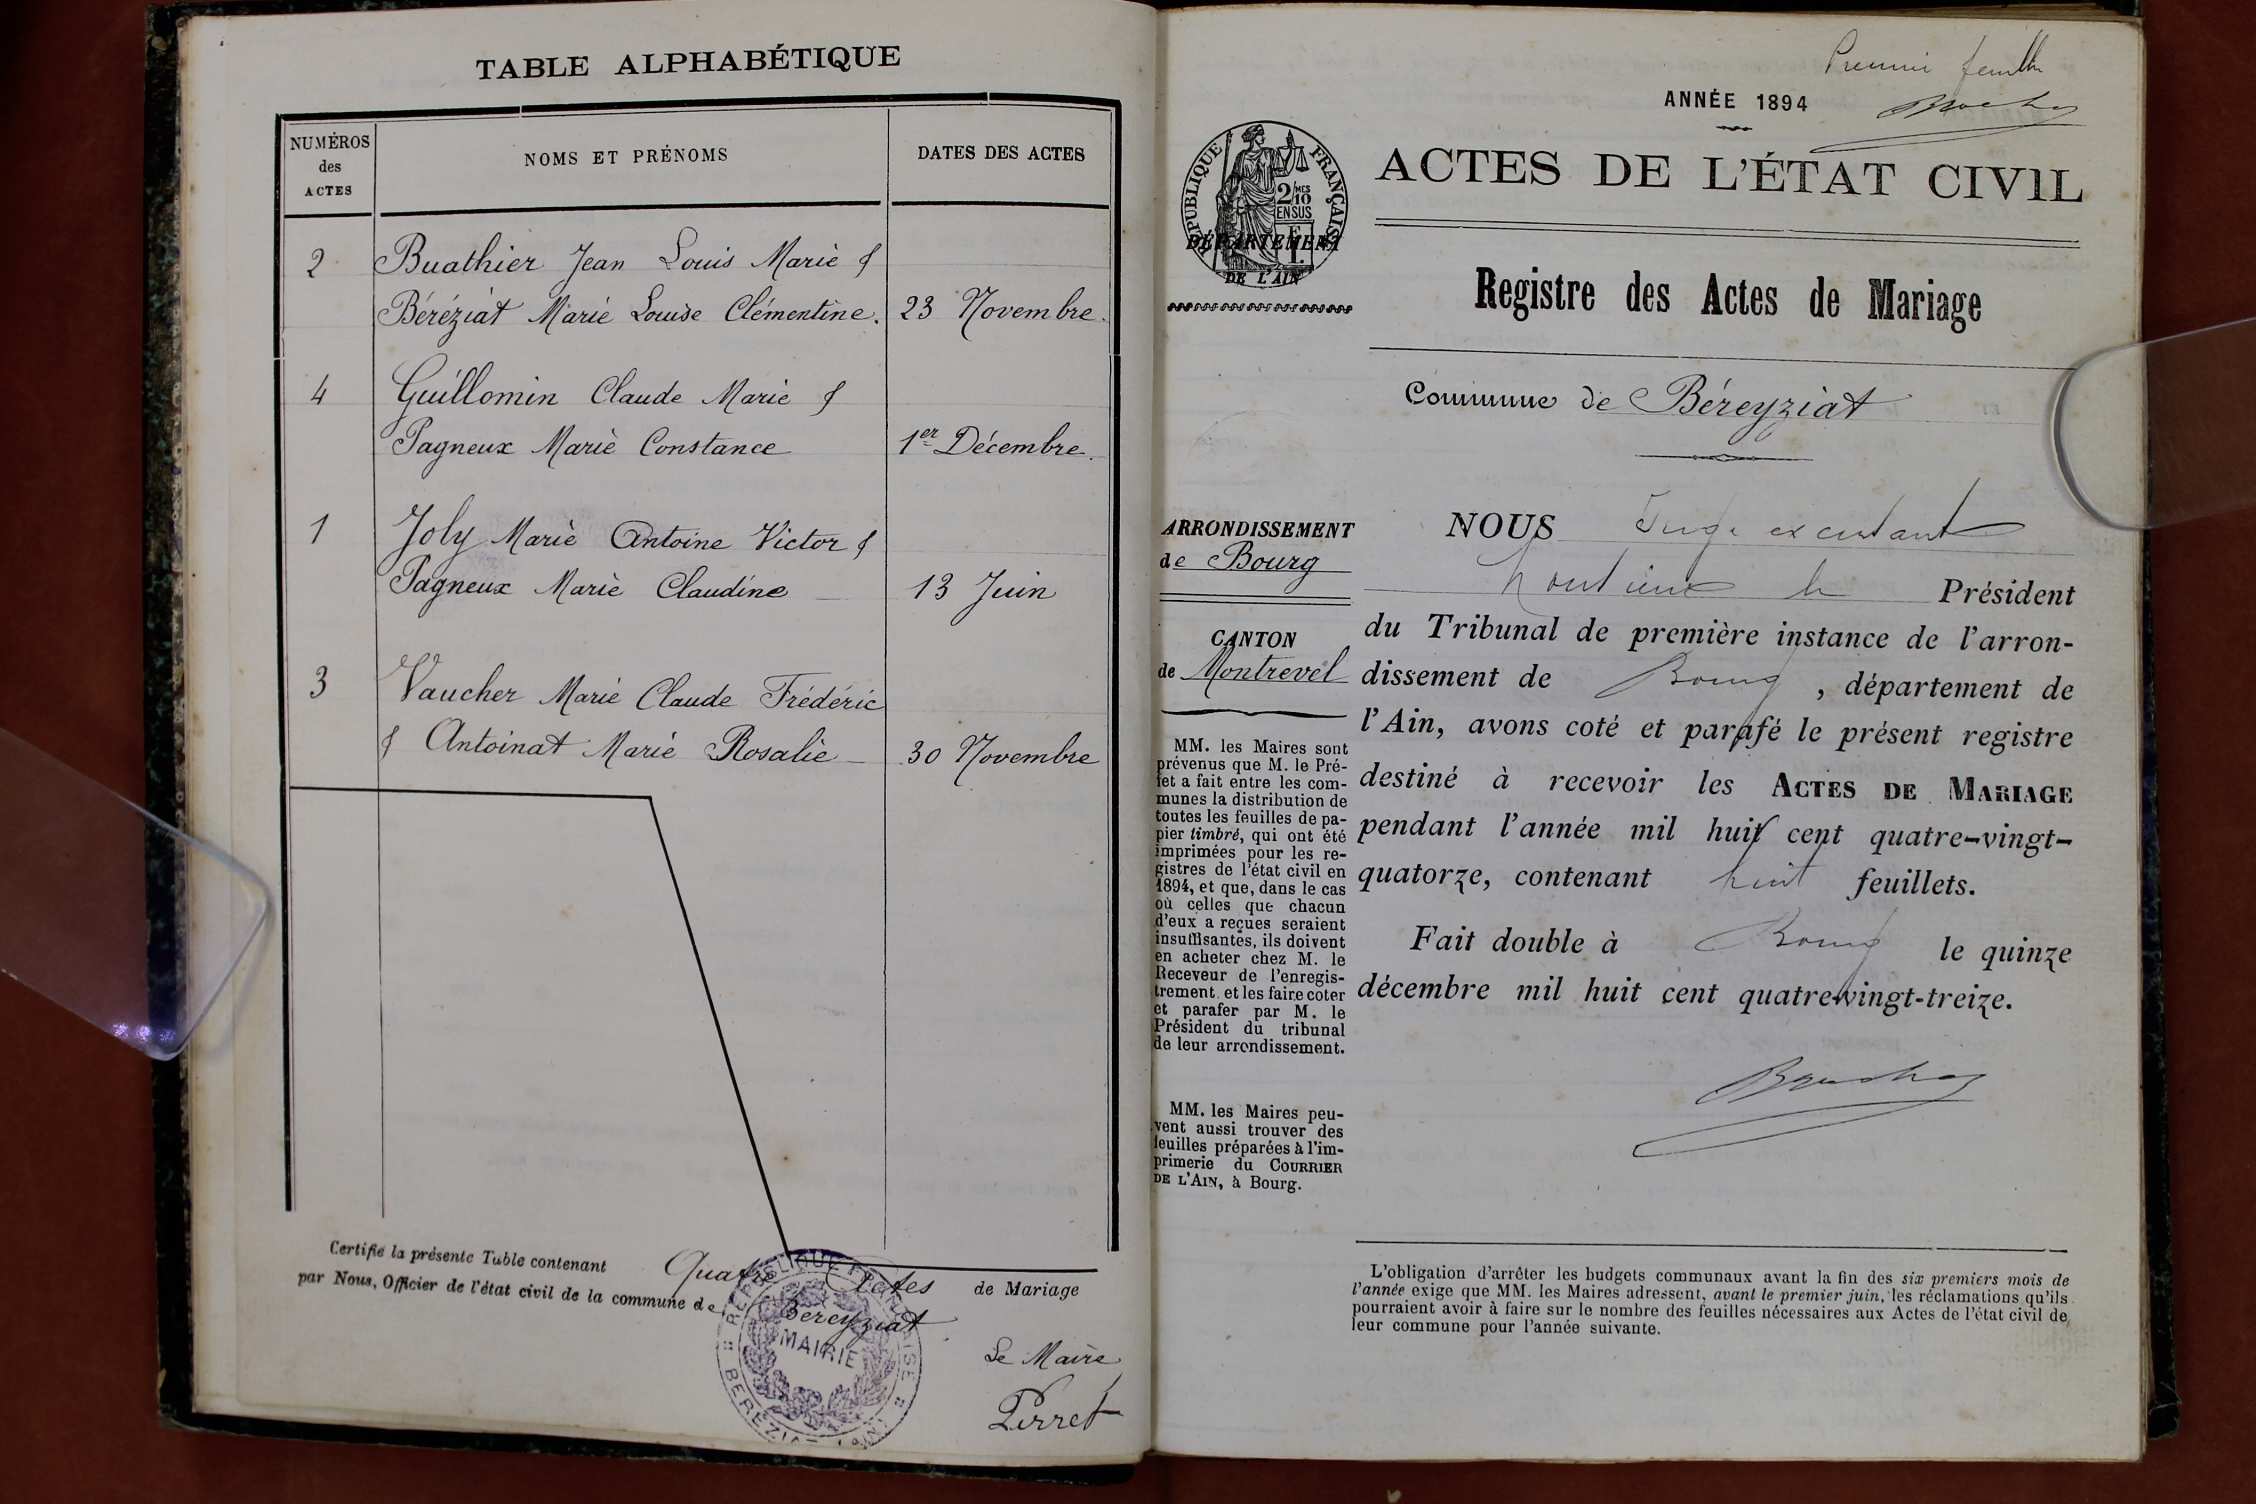 TABLE ALPHABÉTIQUE
NUMÉROS
des
ACTES
NOMS ET PRÉNOMS
DATES DES ACTES
2
Buathier Jean Louis Marie &
Béréziat Marie Louise Clémentine.
23 Novembre.
4
Guillomin Claude Marie &
Pagneux Marie Constance
1er Décembre.
1
Joly Marie Antoine Victor &
Pagneux Marie Claudine
13 Juin
3
Vaucher Marie Claude Frédéric
& Antoinat Marie Rosalie
30 Novembre
Certifié la présente Table contenant Quatre Actes de Mariage
par Nous, Officier de l'état civil de la commune de Béreyziat
RÉPUBLIQUE FRANÇAISE
MAIRIE
BEREZIAT (AIN)
Le Maire
Perret
Premier feuillet
ANNÉE 1894
RÉPUBLIQUE FRANÇAISE
2/10MES
EN SUS
1F.
DÉPARTEMENT
DE L'AIN
ACTES DE L'ÉTAT CIVIL
Registre des Actes de Mariage
Commune de Béreyziat
ARRONDISSEMENT
de Bourg
CANTON
de Montrevel
MM. les Maires sont
prévenus que M. le Pré-
fet a fait entre les com-
munes la distribution de
toutes les feuilles de pa-
pier timbré, qui ont été
imprimées pour les re-
gistres de l'état civil en
1894, et que, dans le cas
où celles que chacun
d'eux a reçues seraient
insuffisantes, ils doivent
en acheter chez M. le
Receveur de l'enregis-
trement et les faire coter
et parafer par M. le
Président du tribunal
de leur arrondissement.
MM. les Maires peu-
vent aussi trouver des
feuilles préparées à l'im-
primerie du COURRIER
DE L'AIN, à Bourg.
NOUS Juge
le Président
du Tribunal de première instance de l'arron-
dissement de Bourg, département de
l'Ain, avons coté et parafé le présent registre
destiné à recevoir les ACTES DE MARIAGE
pendant l'année mil huit cent quatre-vingt-
quatorze, contenant huit feuillets.
Fait double à Bourg le quinze
décembre mil huit cent quatre-vingt-treize.
L'obligation d'arrêter les budgets communaux avant la fin des six premiers mois de
l'année exige que MM. les Maires adressent, avant le premier juin, les réclamations qu'ils
pourraient avoir à faire sur le nombre des feuilles nécessaires aux Actes de l'état civil de
leur commune pour l'année suivante.